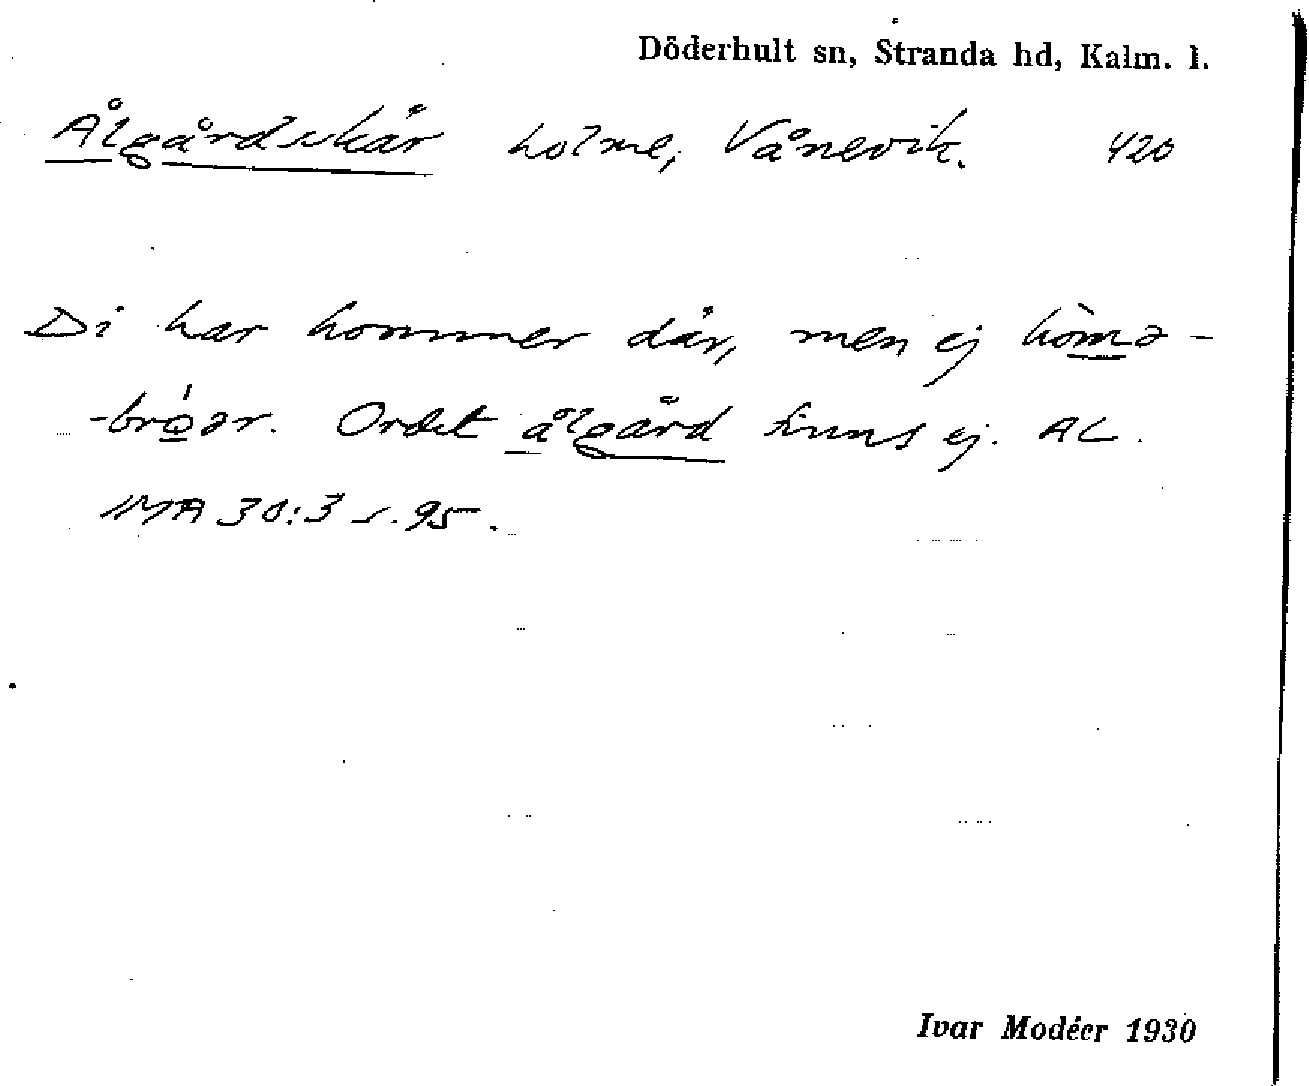 Döderhult sn, Stranda hd, Kalm. l.
Ålgårdskär holme, Vånevik. 420
Di har hommer där, men ej hòmə-
-brǫ́ər. Ordet ålgård finns ej. AL.
IMA 30:3 s. 95.
Ivar Modéer 1930